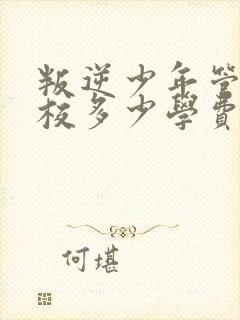 叛逆少年管
校多少學費
何堪